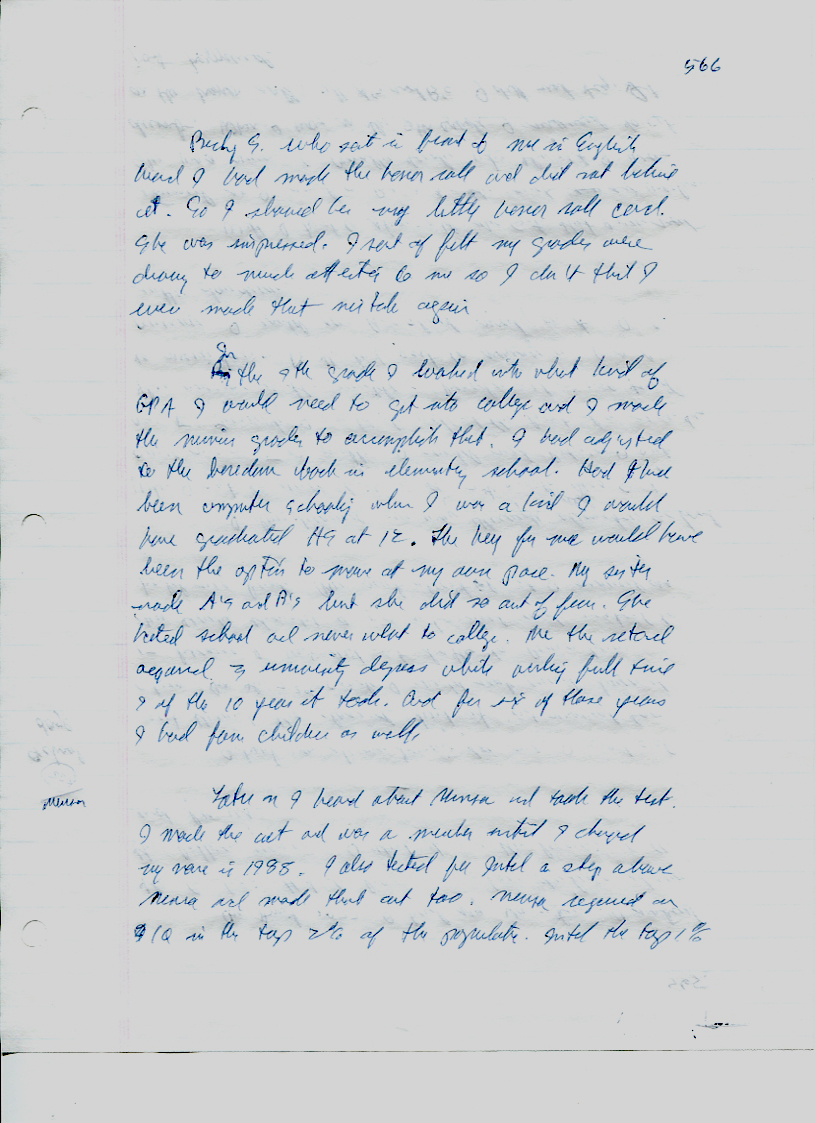 566
Becky S. who sat in front of me in English
heard I had made the honor roll and did not believe
it. So I showed her my little honor roll card.
She was surpressed. I sort of felt my grades were
drawing to much attention to me so I don't think I
ever made that mistake again
In the 9th grade I looked into what kind of
GPA I would need to get into college and I made
the minium grades to accomplish that. I had adjusted
to the boredom back in elementry school. Had there
been computer schooling when I was a kid I would
have graduated HS at 12. The key for me would have
been the option to move at my own pace. My sister
made A's and B's but she did so out of fear. She
hated school and never what to college. Me the retard
acquired 3 university degress while working full time
9 of the 10 years it took. And for six of those years
I had four children as well.
Mensa
Later on I heard about Mensa and took the test.
I made the cut and was a member until I changed
my name in 1985. I also tested for Intel a step above
Mensa and made that cut too. Mensa required an
IQ in the top 2% of the population. Intel the top 1%